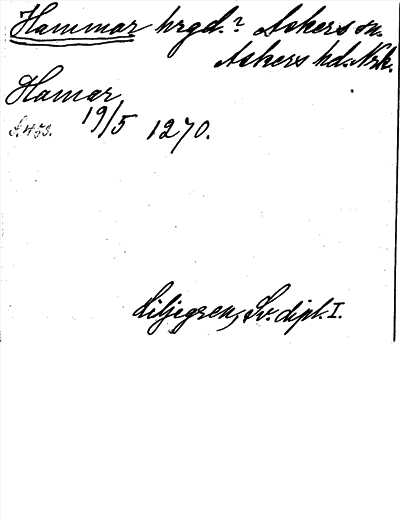 Hammar hrgd.? Askers sn.
Askers hd. Nrk.
Hamar
19/5 1270.
Liljegren, Sv. dipl. I.